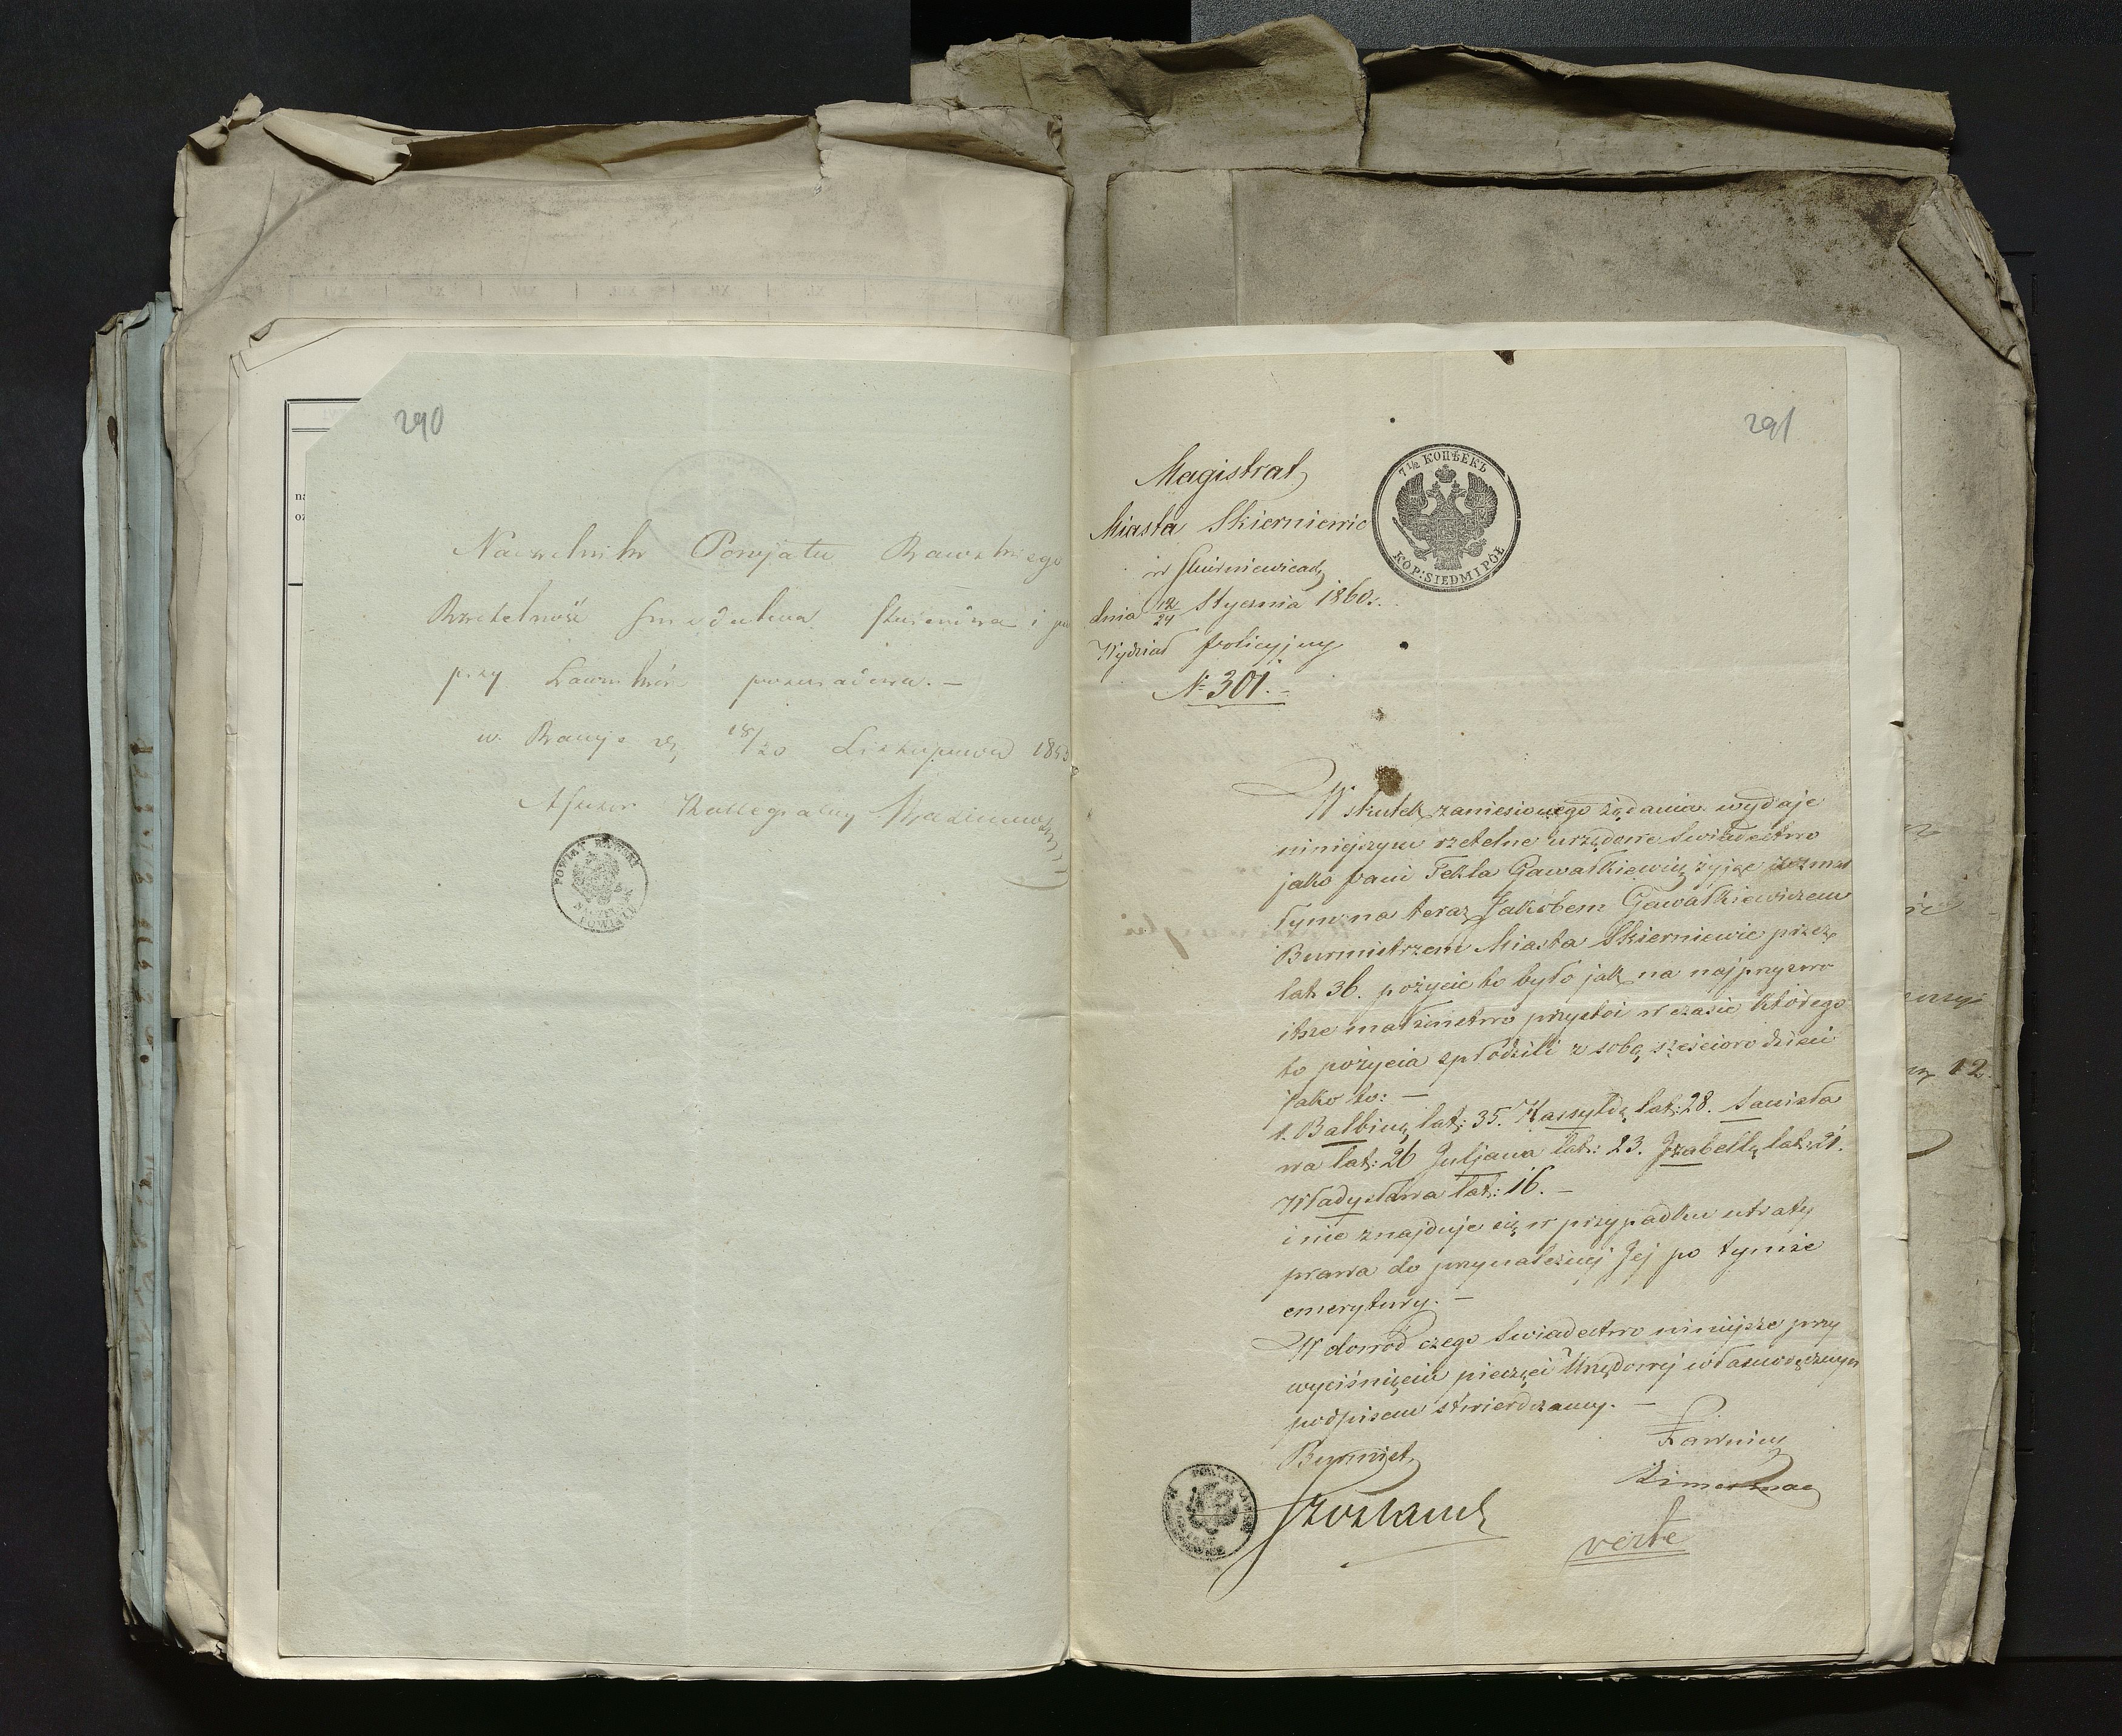 290
Naczelnik Powjatu Rawskiego
Rzetelność świadectwa
przy
w Rawje d. 18/30 Listopada 185
Assesor Kollegialny
POWIAT RAWSKI
NACZELNIK POWIATU
291
Magistrat
Miasta Skierniewic
w Skierniewicach
dnia 12/24 Stycznia 1860 r.
Wydział Policyjny
№ 301.
7 1/2 КОПѢЕКЪ
KOP: SIEDM I PÓŁ
W skutek zaniesionego żądania wydaje
niniejszym rzetelne urzędowe Swiadectwo
jako Pani Tekla Gawałkiewicz żyjąc
teraz Jakóbem Gawałkiewiczem
Burmistrzem Miasta Skierniewic przez
lat 36. pożycie to było jak na najprzyzwo
itsze małżeństwo przystoi w czasie którego
to pożycia spłodzili z sobą sześcioro dzieci
jako to: —
1. Balbinę lat: 35. Kassyldę lat: 28. Stanisła
wa lat: 26 Juljana lat: 23. Izabellę lat: 21.
Władysława lat: 16. —
i nie znajduje się w przypadku utraty
prawa do przynależnej Jej po tymże
emerytury. —
W dowód czego Swiadectwo niniejsze przy
wyciśnięciu pieczęci Urzędowej własnoręcznym
podpisem stwierdzamy. —
Burmist.
Ławnicy
verte